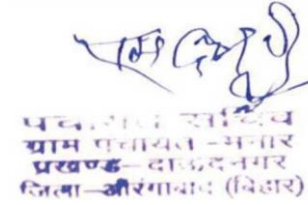 सचिव
ग्राम पंचायत - मनार
प्रखण्ड - दाऊदनगर
जिला - औरंगाबाद (बिहार)